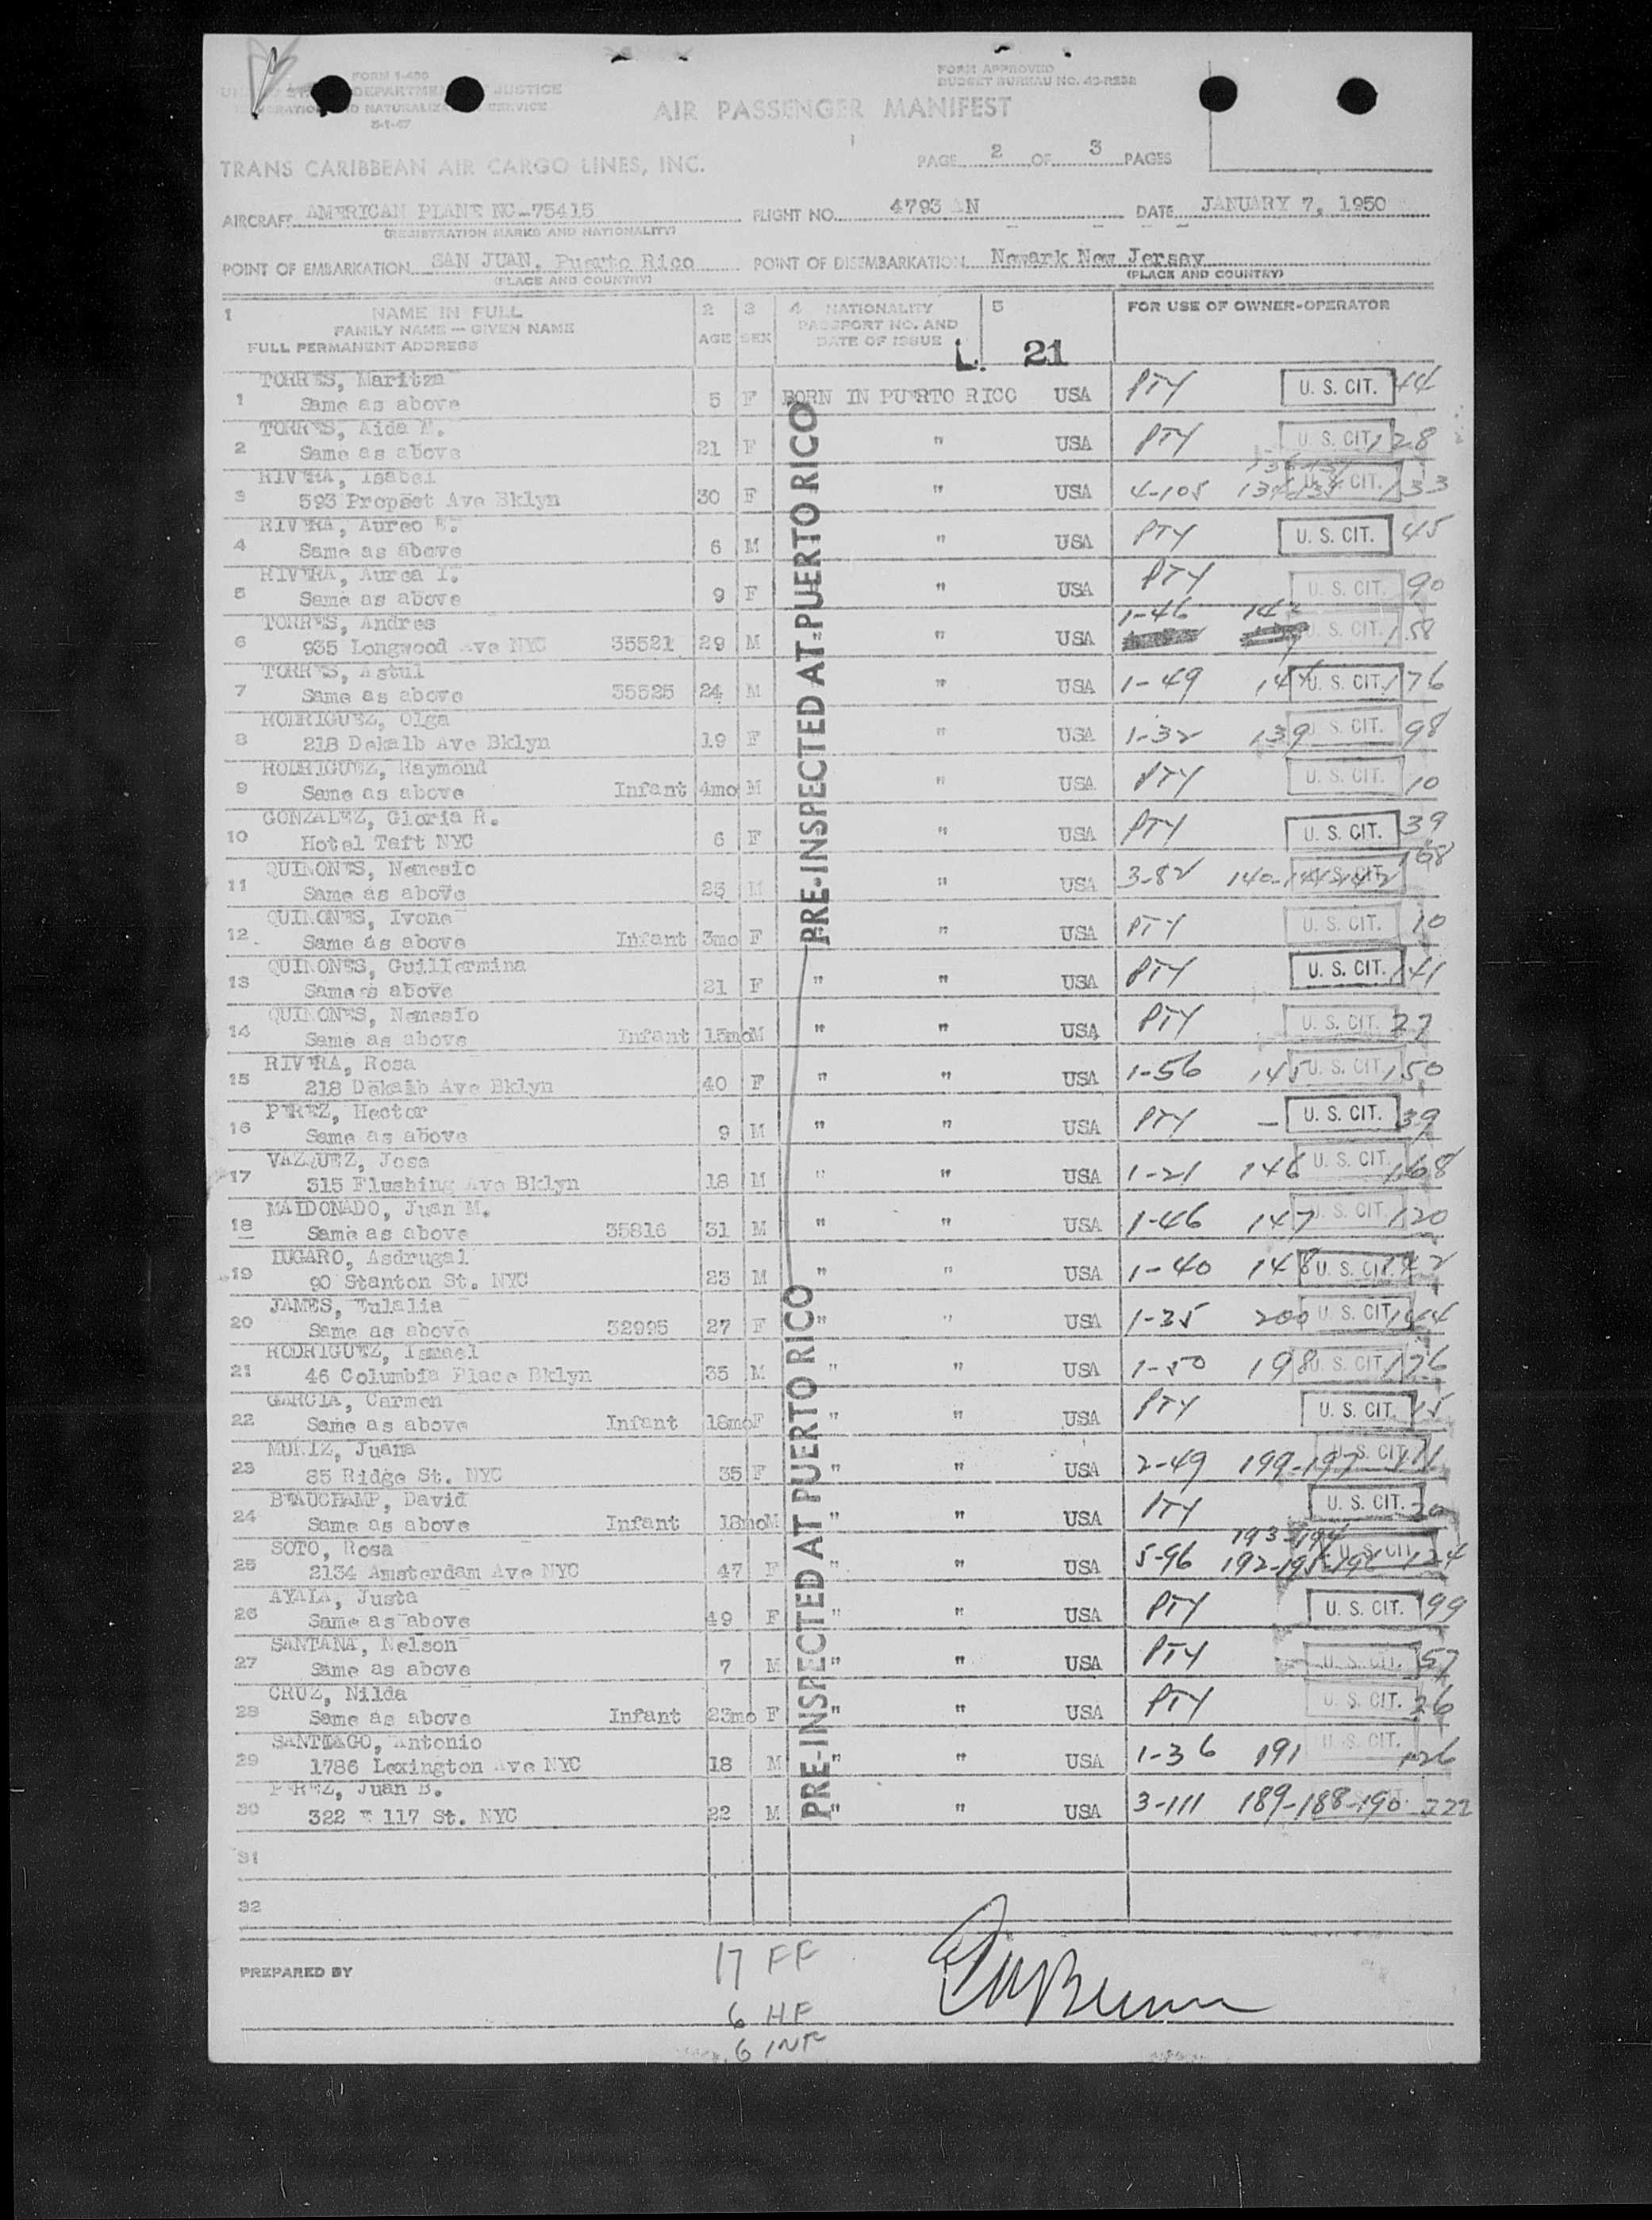 FORM 1-466
DEPARTMENT JUSTICE
NATURALIZATION SERVICE
5-1-47
FORM APPROVED
BUDGET BUREAU NO. 43-R538
AIR PASSENGER MANIFEST
TRANS CARIBBEAN AIR CARGO LINES, INC.
PAGE 2 OF 3 PAGES
AIRCRAFT AMERICAN PLANE NC-75415 FLIGHT NO. 4793 AN DATE JANUARY 7, 1950
(REGISTRATION MARKS AND NATIONALITY)
POINT OF EMBARKATION SAN JUAN, Puerto Rico POINT OF DISEMBARKATION Newark New Jersey
(PLACE AND COUNTRY) (PLACE AND COUNTRY)
1 NAME IN FULL 2 3 4 NATIONALITY 5 FOR USE OF OWNER-OPERATOR
FAMILY NAME — GIVEN NAME AGE SEX PASSPORT NO. AND
FULL PERMANENT ADDRESS DATE OF ISSUE L. 21
TORRES, Maritza
1 Same as above 5 F BORN IN PUERTO RICO USA PTY U. S. CIT. 44
TORRES, Aida E.
2 Same as above 21 F " USA PTY U. S. CIT. 128
RIVERA, Isabel
3 593 Propset Ave Bklyn 30 F " USA 4-105 U. S. CIT. 133
RIVERA, Aureo E.
4 Same as above 6 M " USA PTY U. S. CIT. 45
RIVERA, Aurea I.
5 Same as above 9 F " USA PTY U. S. CIT. 90
TORRES, Andres
6 935 Longwood Ave NYC 35521 29 M " USA 1-46 142 U. S. CIT. 158
TORRES, Astul
7 Same as above 35525 24 M " USA 1-49 144 U. S. CIT. 176
RODRIGUEZ, Olga
8 218 Dekalb Ave Bklyn 19 F " USA 1-32 139 U. S. CIT. 98
RODRIGUEZ, Raymond
9 Same as above Infant 4mo M " USA PTY U. S. CIT. 10
GONZALEZ, Gloria R.
10 Hotel Taft NYC 6 F " USA PTY U. S. CIT. 39
QUINONES, Nemesio
11 Same as above 25 M " USA 3-82 140-141-142 U. S. CIT. 168
QUINONES, Ivone
12 Same as above Infant 3mo F " USA PTY U. S. CIT. 10
QUINONES, Guillermina
13 Same as above 21 F " " USA PTY U. S. CIT. 141
QUINONES, Nemesio
14 Same as above Infant 15mo M " " USA PTY U. S. CIT. 27
RIVERA, Rosa
15 218 Dekalb Ave Bklyn 40 F " " USA 1-56 145 U. S. CIT. 150
PEREZ, Hector
16 Same as above 9 M " " USA PTY — U. S. CIT. 39
VAZQUEZ, Jose
17 315 Flushing Ave Bklyn 18 M " " USA 1-21 146 U. S. CIT. 168
MALDONADO, Juan M.
18 Same as above 35816 31 M " " USA 1-46 147 U. S. CIT. 120
LUGARO, Asdrugal
19 90 Stanton St. NYC 23 M " " USA 1-40 148 U. S. CIT. 142
JAMES, Eulalia
20 Same as above 32995 27 F " " USA 1-35 200 U. S. CIT. 144
RODRIGUEZ, Ismael
21 46 Columbia Place Bklyn 35 M " " USA 1-50 198 U. S. CIT. 176
GARCIA, Carmen
22 Same as above Infant 18mo F " " USA PTY U. S. CIT. 15
MUNIZ, Juana
23 85 Ridge St. NYC 35 F " " USA 2-49 199-197 U. S. CIT. 111
BEAUCHAMP, David
24 Same as above Infant 18mo M " " USA PTY U. S. CIT. 30
SOTO, Rosa 193-194
25 2134 Amsterdam Ave NYC 47 F " " USA 5-96 192-195-196 U. S. CIT. 124
AYALA, Justa
26 Same as above 49 F " " USA PTY U. S. CIT. 99
SANTANA, Nelson
27 Same as above 7 M " " USA PTY U. S. CIT. 57
CRUZ, Nilda
28 Same as above Infant 23mo F " " USA PTY U. S. CIT. 26
SANTIAGO, Antonio
29 1786 Lexington Ave NYC 18 M " " USA 1-36 191 U. S. CIT. 126
PEREZ, Juan B.
30 322 E 117 St. NYC 22 M " " USA 3-111 189-188-190 222
31
32
PRE-INSPECTED AT PUERTO RICO
PRE-INSPECTED AT PUERTO RICO
17 FF
PREPARED BY
6 HF
6 INF